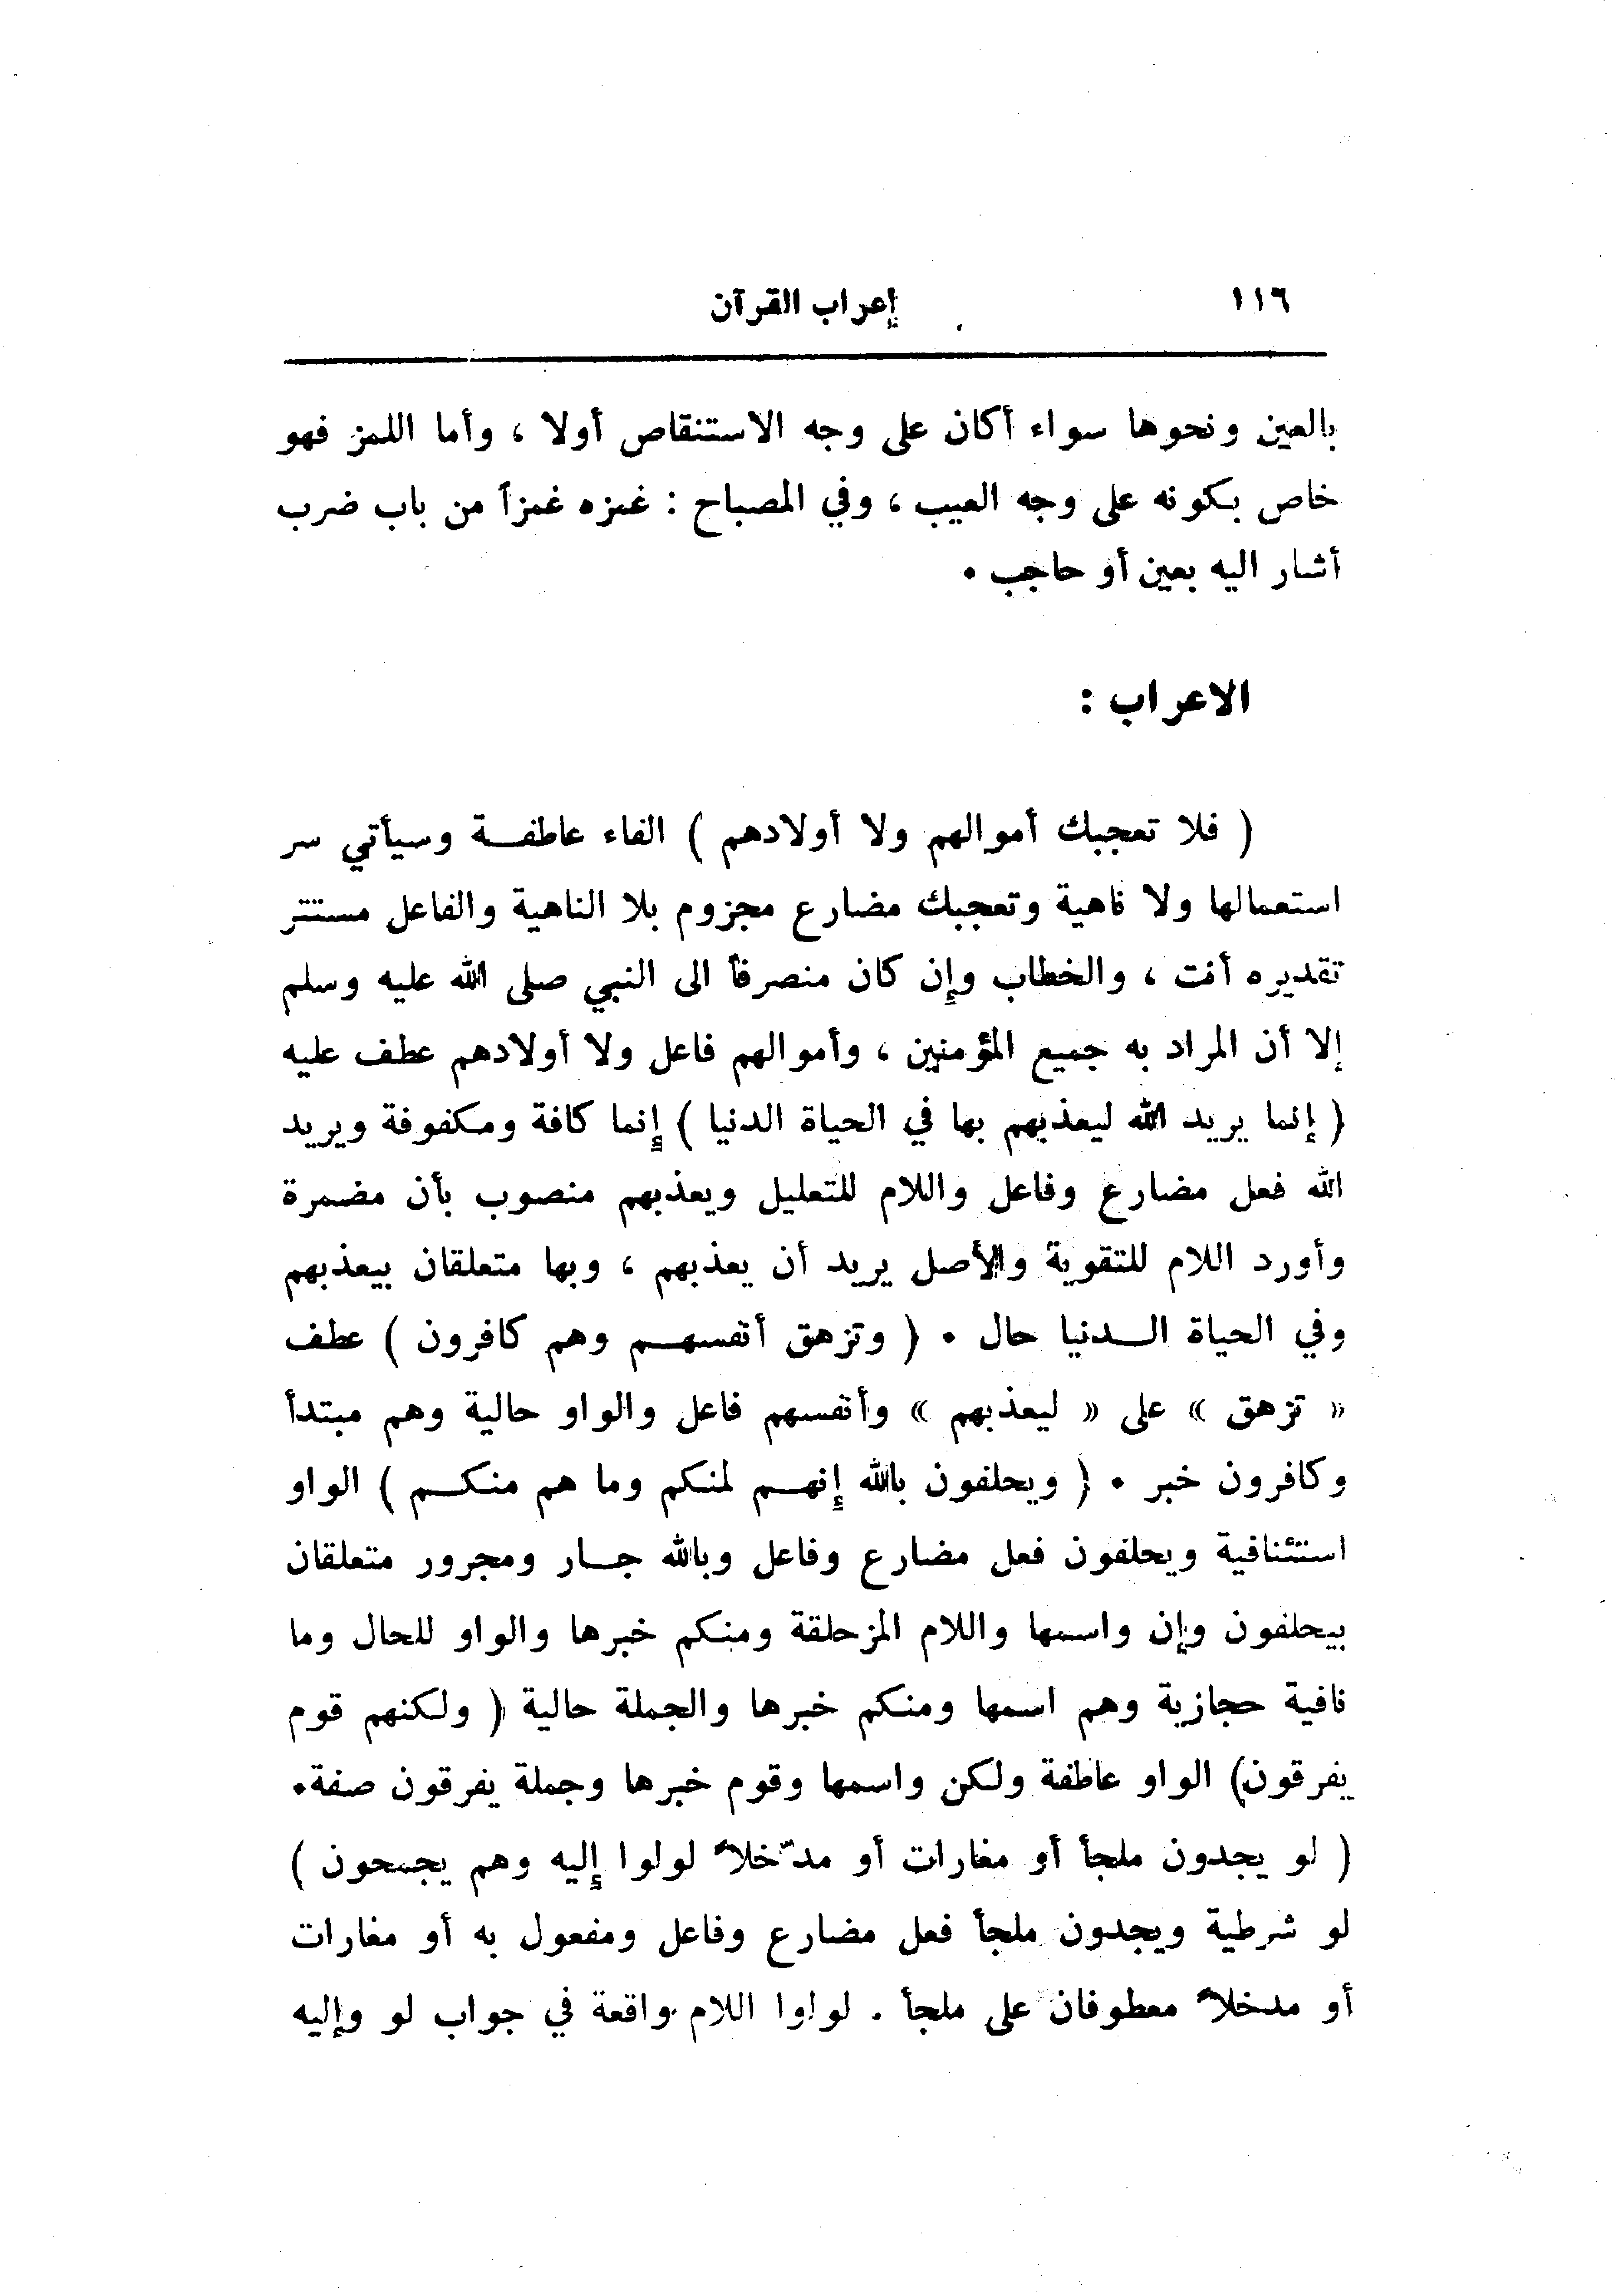 ١١٦ إعراب القرآن
بالعين ونحوها سواء أكان على وجه الاستنقاص أولا ، وأما اللمز فهو
خاص بكونه على وجه العيب ، وفي المصباح : غمزه غمزاً من باب ضرب
أشار اليه بعين أو حاجب .
الاعراب :
( فلا تعجبك أموالهم ولا أولادهم ) الفاء عاطفة وسيأتي سر
استعمالها ولا ناهية وتعجبك مضارع مجزوم بلا الناهية والفاعل مستتر
تقديره أنت ، والخطاب وإن كان منصرفاً الى النبي صلى الله عليه وسلم
إلا أن المراد به جميع المؤمنين ، وأموالهم فاعل ولا أولادهم عطف عليه
( إنما يريد الله ليعذبهم بها في الحياة الدنيا ) إنما كافة ومكفوفة ويريد
الله فعل مضارع وفاعل واللام للتعليل ويعذبهم منصوب بأن مضمرة
وأورد اللام للتقوية والأصل يريد أن يعذبهم ، وبها متعلقان بيعذبهم
وفي الحياة الدنيا حال . ( وتزهق أنفسهم وهم كافرون ) عطف
« تزهق » على « ليعذبهم » وأنفسهم فاعل والواو حالية وهم مبتدأ
وكافرون خبر . ( ويحلفون بالله إنهم لمنكم وما هم منكم ) الواو
استئنافية ويحلفون فعل مضارع وفاعل وبالله جار ومجرور متعلقان
بيحلفون وإن واسمها واللام المزحلقة ومنكم خبرها والواو للحال وما
نافية حجازية وهم اسمها ومنكم خبرها والجملة حالية ( ولكنهم قوم
يفرقون) الواو عاطفة ولكن واسمها وقوم خبرها وجملة يفرقون صفة.
( لو يجدون ملجأ أو مغارات أو مدّخلاً لولوا إليه وهم يجمحون )
لو شرطية ويجدون ملجأ فعل مضارع وفاعل ومفعول به أو مغارات
أو مدخلاً معطوفان على ملجأ . لولوا اللام واقعة في جواب لو وإليه